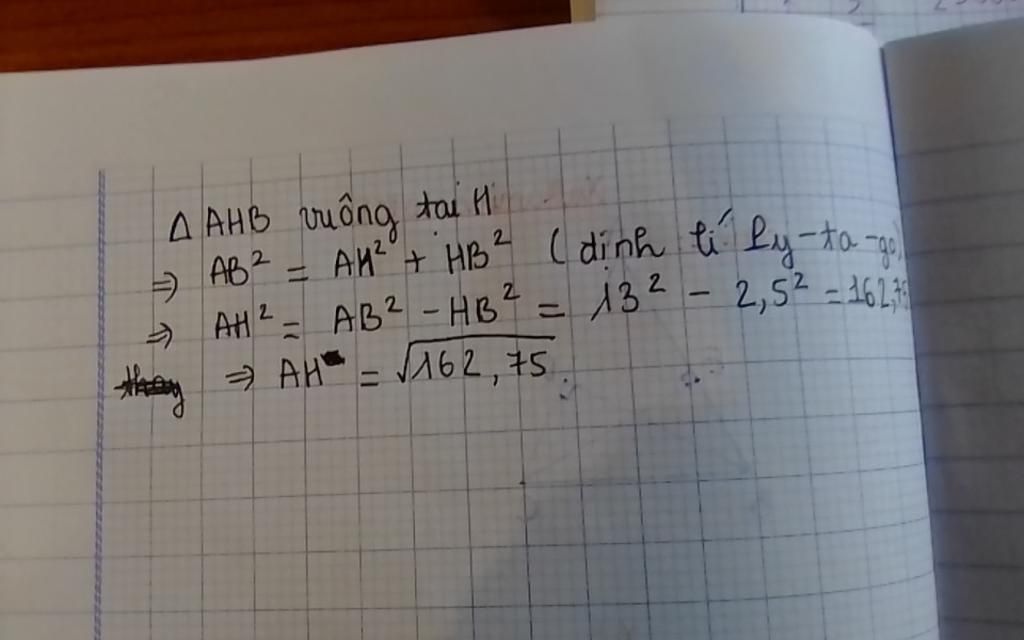 Δ AHB vuông tại H
⇒ AB² = AH² + HB² (định lí Py-ta-go)
⇒ AH² = AB² - HB² = 13² - 2,5² = 162,75
⇒ AH = √162,75.